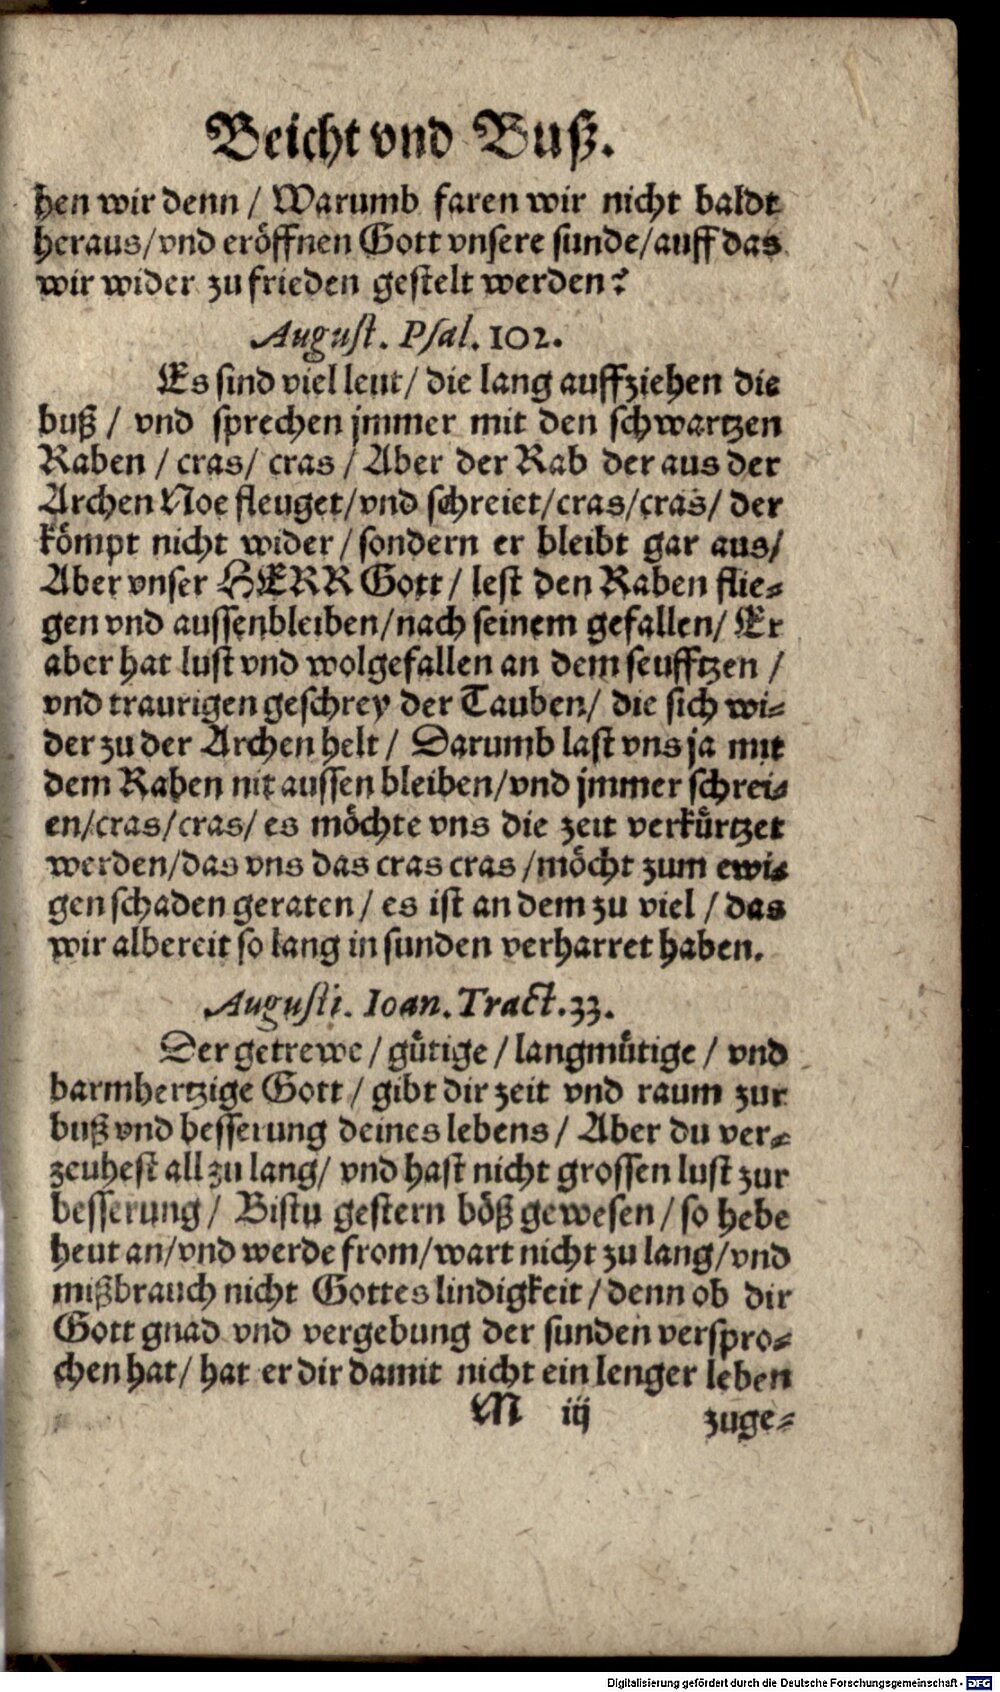 Beicht vnd Buß.
hen wir denn / Warumb faren wir nicht baldt
heraus / vnd eröffnen Gott vnsere sunde / auff das
wir wider zu frieden gestelt werden?
August. Psal. 102.
Es sind viel leut / die lang auffziehen die
buß / vnd sprechen jmmer mit den schwartzen
Raben / cras / cras / Aber der Rab der aus der
Archen Noe fleuget / vnd schreiet / cras / cras / der
kömpt nicht wider / sondern er bleibt gar aus /
Aber vnser HERR Gott / lest den Raben flie-
gen vnd aussenbleiben / nach seinem gefallen / Er
aber hat lust vnd wolgefallen an dem seufftzen /
vnd traurigen geschrey der Tauben / die sich wi-
der zu der Archen helt / Darumb last vns ja mit
dem Raben nit aussen bleiben / vnd jmmer schrei-
en / cras / cras / es möchte vns die zeit verkürtzet
werden / das vns das cras cras / möcht zum ewi-
gen schaden geraten / es ist an dem zu viel / das
wir albereit so lang in sunden verharret haben.
Augusti. Ioan. Tract. 33.
Der getrewe / gütige / langmütige / vnd
barmhertzige Gott / gibt dir zeit vnd raum zur
buß vnd besserung deines lebens / Aber du ver-
zeuhest all zu lang / vnd hast nicht grossen lust zur
besserung / Bistu gestern böß gewesen / so hebe
heut an / vnd werde from / wart nicht zu lang / vnd
mißbrauch nicht Gottes lindigkeit / denn ob dir
Gott gnad vnd vergebung der sunden verspro-
chen hat / hat er dir damit nicht ein lenger leben
M iij zuge-
Digitalisierung gefördert durch die Deutsche Forschungsgemeinschaft - DFG